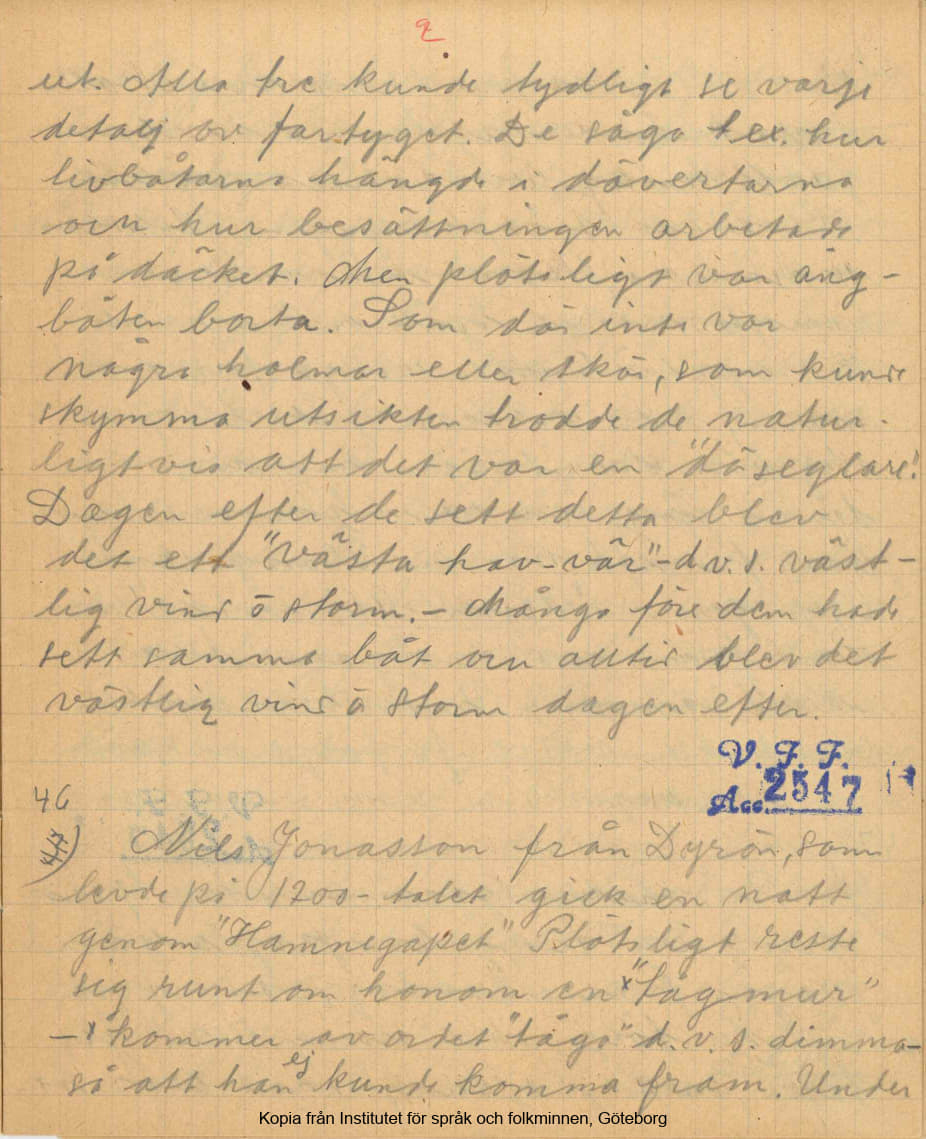 9
ut. Alla tre kunde tydligt se varje
detalj av fartyget. De såga t ex. hur
livbåtarna hängde i dävertarna
och hur besättningen arbetade
på däcket. Men plötsligt var ång-
båten borta. Som där inte var
några holmar eller skär, som kunde
skymma utsikten trodde de natur-
ligtvis att det var en "dö seglare".
Dagen efter de sett detta blev
det ett "västa hav-vär" - d v. s. väst-
lig vind å storm. - Många före dem hade
sett samma båt och alltid blev det
västlig vind å storm dagen efter.
V. F. F.
Acc. 2547
46
Nils Jonasson från Dyrön, som
levde på 1200-talet gick en natt
genom "Hamnegapet" Plötsligt reste
sig runt om honom en x"tågmur"
- x kommer av ordet "tåga" d. v. s. dimma -
så att han ej kunde komma fram. Under
Kopia från Institutet för språk och folkminnen, Göteborg